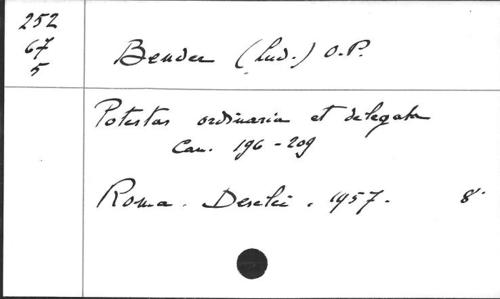 252
67
5
Bender (Lud.) O.P.
Potestas ordinaria et delegata
Can. 196-209
Roma. Desclée. 1957. 8°